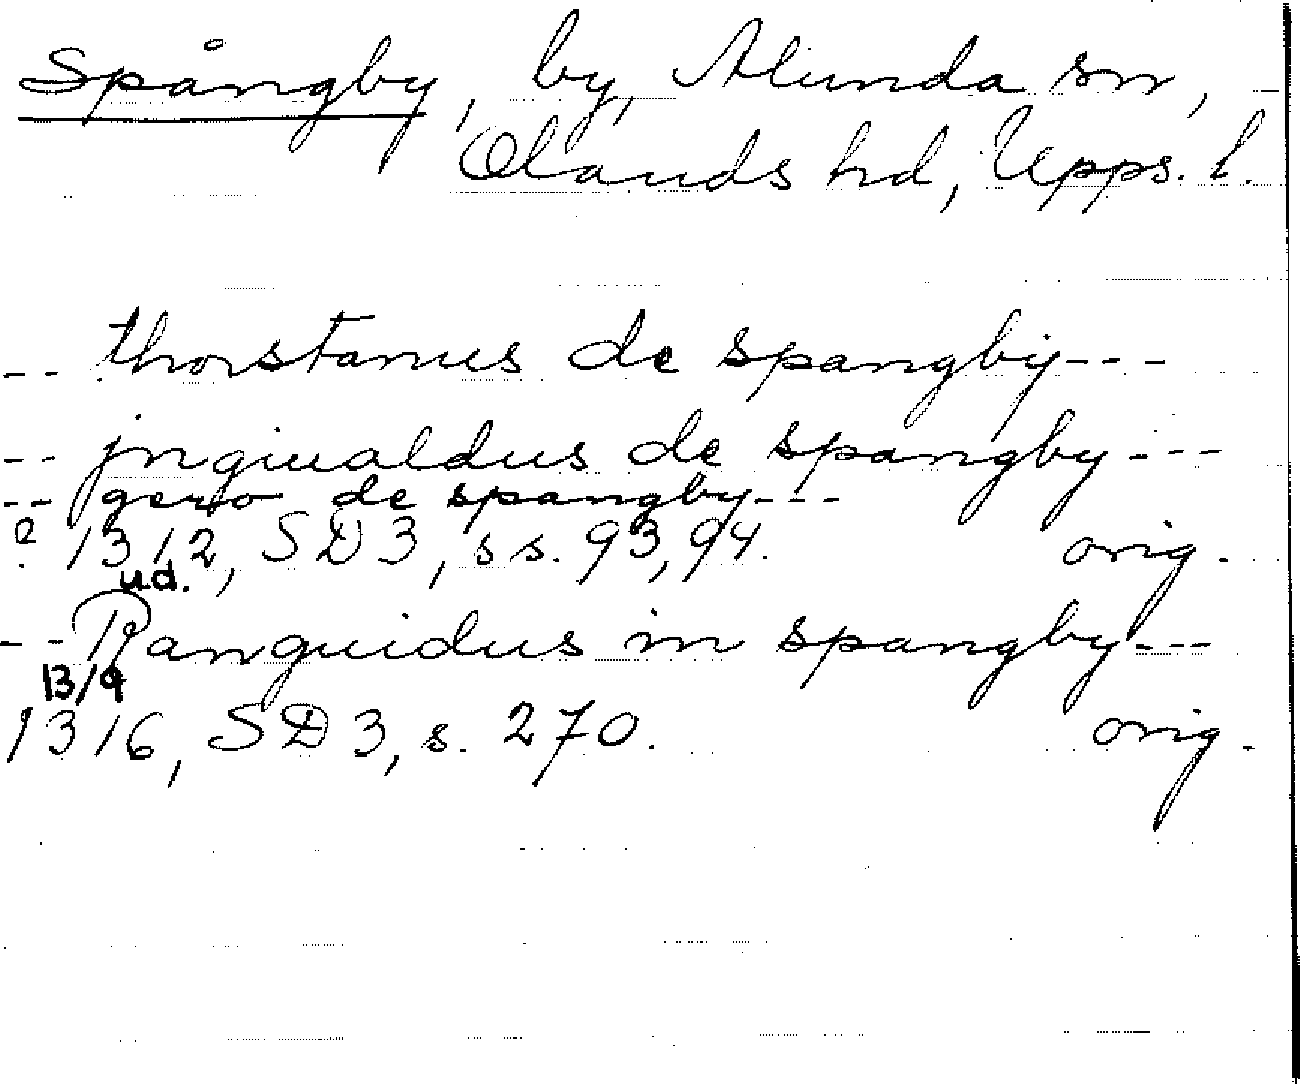 Spångby, by, Alunda sn,
Olands hd, Upps. l.
-- thorstanus de spangby ---
-- jngiualdus de spangby ---
-- gero de spangby ---
? 1312, SD 3, ss. 93, 94. orig.
u.d.
-- Ranguidus in spangby ---
13/9
1316, SD 3, s. 270. orig.